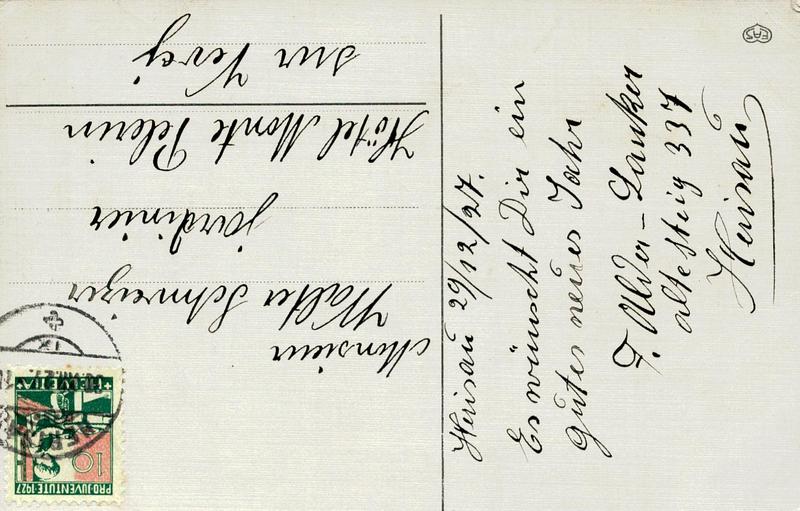 Herisau 29/12/27.
Es wünscht Dir ein
gutes neues Jahr
F. Alder-Lanker
alte Steig 337
Herisau
Monsieur
Walter Schweizer
jardinier
Hôtel Monte Pelerin
sur Vevey
HELVETIA
10
PRO JUVENTUTE 1927
EAS